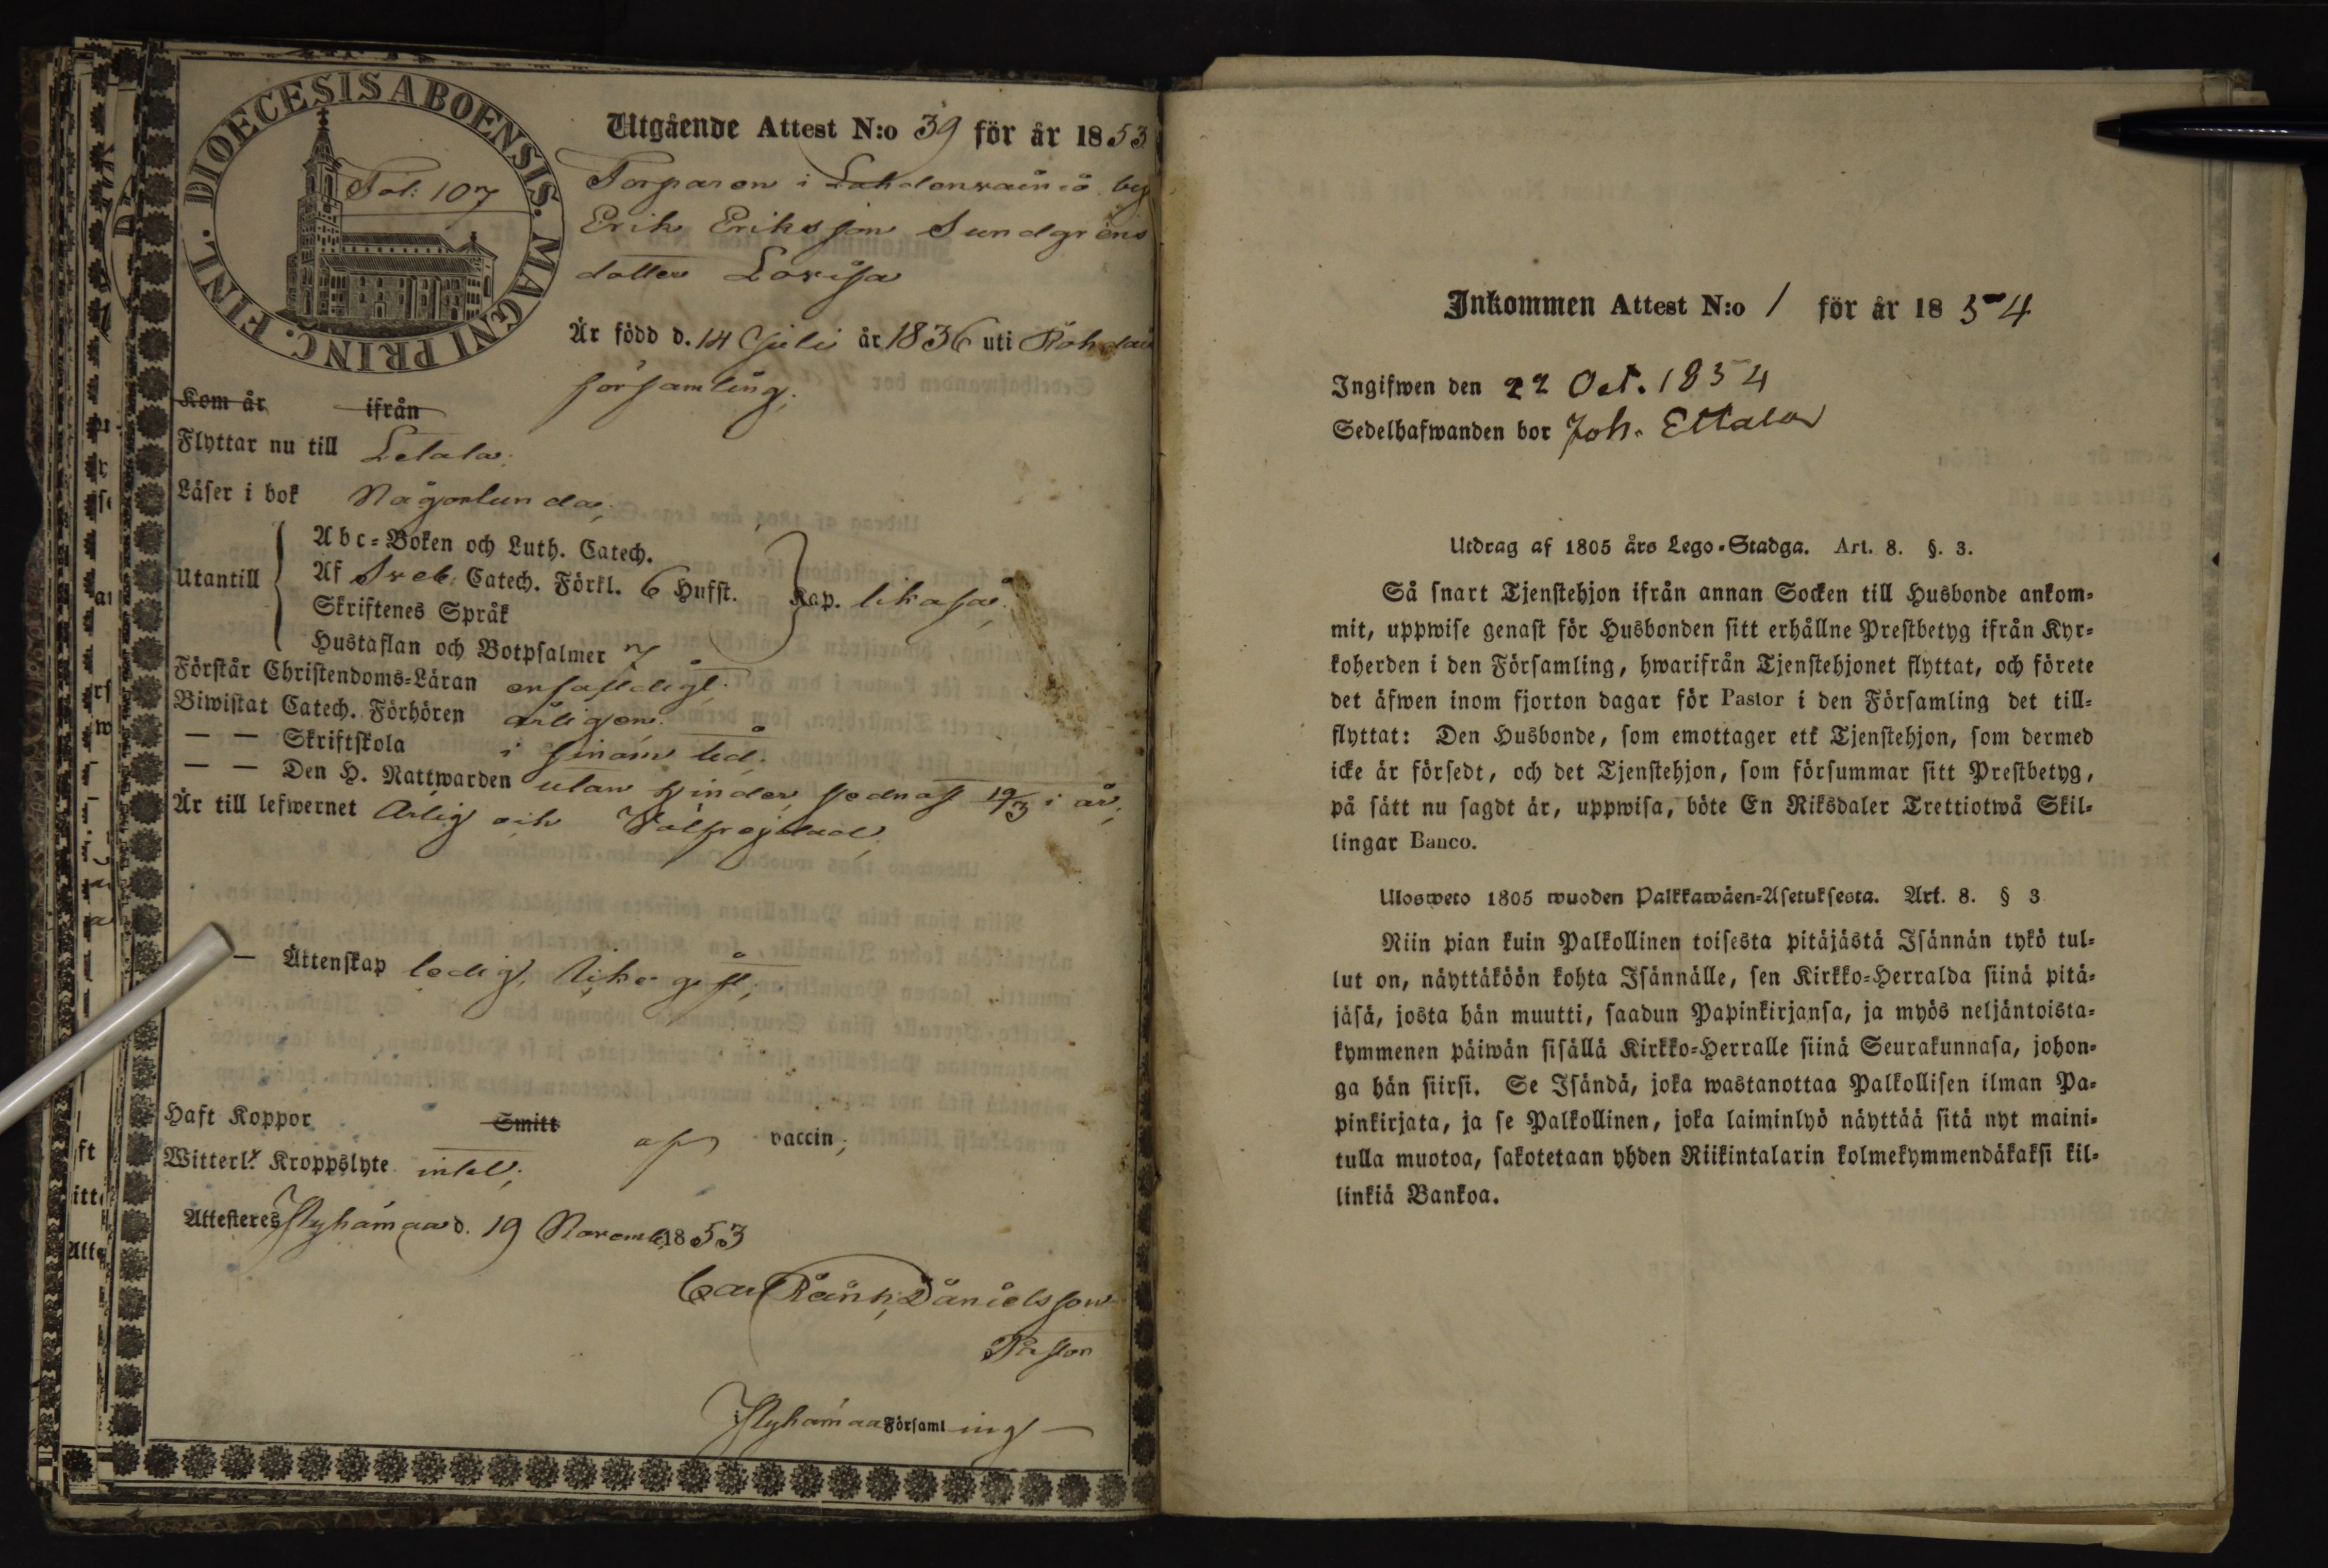 DIOECESIS ABOENSIS. MAGNI PRINC. FINL.
Fol: 107
Utgående Attest N:o 39 för år 1853
Torparen i Lahdonvainio by
Erik Eriksson Sundgrens
dotter Lovisa
Är född d. 14 Julii år 1836 uti
församling;
Kom år ifrån
Flyttar nu till Letala.
Läser i bok Någorlunda;
Utantill
Abc-Boken och Luth. Catech.
Af Sveb. Catech. Förkl. 6 Hufst. Kap. likaså;
Skriftenes Språk
Hustaflan och Botpsalmer 7
Förstår Christendoms-Läran enfaldigt.
Biwistat Catech. Förhören årligen.
— — Skriftskola i sinom tid.
— — Den H. Nattwarden utan hinder sednast 19/3 i år;
Är till lefwernet Ärlig och Välfrejdad.
— Äktenskap ledig, icke gift;
Haft Koppor Smitt af vaccin;
Witterl:t Kroppslyte intet;
Attesteras Pyhämaa d. 19 Novemb. 1853
Carl Ränk, Danielsson
Pastor
i Pyhämaa Församling
Inkommen Attest N:o 1 för år 1854
Ingifwen den 22 Oct. 1854
Sedelhafwanden bor Joh. Ettala
Utdrag af 1805 års Lego-Stadga. Art. 8. §. 3.
Så snart Tjenstehjon ifrån annan Socken till Husbonde ankom-
mit, uppwise genast för Husbonden sitt erhållne Prestbetyg ifrån Kyr-
koherden i den Församling, hwarifrån Tjenstehjonet flyttat, och förete
det äfwen inom fjorton dagar för Pastor i den Församling det till-
flyttat: Den Husbonde, som emottager ett Tjenstehjon, som dermed
icke är försedt, och det Tjenstehjon, som försummar sitt Prestbetyg,
på sätt nu sagdt är, uppwisa, böte En Riksdaler Trettiotwå Skil-
lingar Banco.
Ulosweto 1805 wuoden Palkkawäen-Asetuksesta. Art. 8. § 3
Niin pian kuin Palkollinen toisesta pitäjästä Isännän tykö tul-
lut on, näyttäköön kohta Isännälle, sen Kirkko-Herralda siinä pitä-
jäsä, josta hän muutti, saadun Papinkirjansa, ja myös neljäntoista-
kymmenen päiwän sisällä Kirkko-Herralle siinä Seurakunnasa, johon-
ga hän siirsi. Se Isändä, joka wastanottaa Palkollisen ilman Pa-
pinkirjata, ja se Palkollinen, joka laiminlyö näyttää sitä nyt maini-
tulla muotoa, sakotetaan yhden Riikintalarin kolmekymmendäkaksi kil-
linkiä Bankoa.